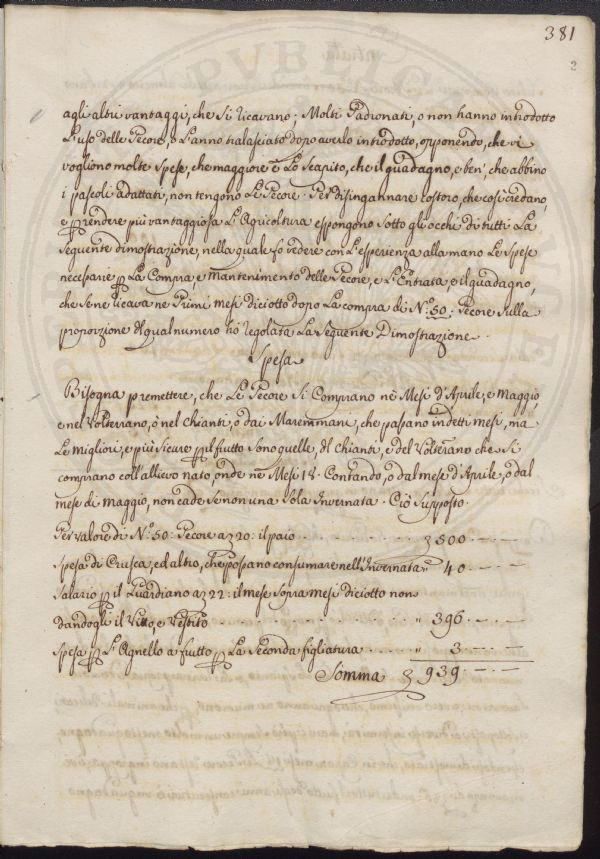 381
2
agli altri vantaggi, che si ricavano; Molti Padronati, o non hanno introdotto
L'uso delle Pecore, o L'anno tralasciato dopo averlo introdotto, opponendo, che vi
vogliono molte spese, che maggiore è Lo Scapito, che il guadagno, e ben', che abbino
i pascoli adattati, non tengono Le Pecore. Per disingannare costoro, che così credano,
e p rendere più vantaggiosa L'Agricoltura espongono sotto gli occhi di tutti La
seguente dimostrazione, nella quale fò vedere con L'esperienza alla mano Le spese
necesarie p La Compra, e mantenimento delle Pecore, e L'Entrata, o il guadagno,
che se ne ricava ne Primi mesi diciotto dopo La compra di N.º 50: Pecore sulla
proporzione del qual numero hò regolata La Seguente Dimostrazione.
Spesa
Bisogna premettere, che Le Pecore si Comprano nè Mesi d'Aprile, e Maggio,
e nel Volterrano, ò nel chianti, ò dai Maremmani, che passano in detti mesi, ma
Le migliori, e più sicure p il frutto sono quelle, del chianti, e del Volterano che si
comprano coll'allievo nato, onde ne Mesi 18. Contando, o dal mese d'Aprile, o dal
mese di maggio, non cade se non una sola Invernata. Ciò supposto.
Per valore di N.º 50: Pecore a z 20: il paio z 500. - -
Spesa di Crusca, ed altro, che possano consumare nell'Invernata " 40 - -
Salario p il Guardiano a z 22: il mese sopra mesi diciotto non
dandogli il Vitto, e Vestito " 396. - -
Spesa p L'Agnello a frutto p La Seconda figliatura " 3 - -
Somma z 939 - -